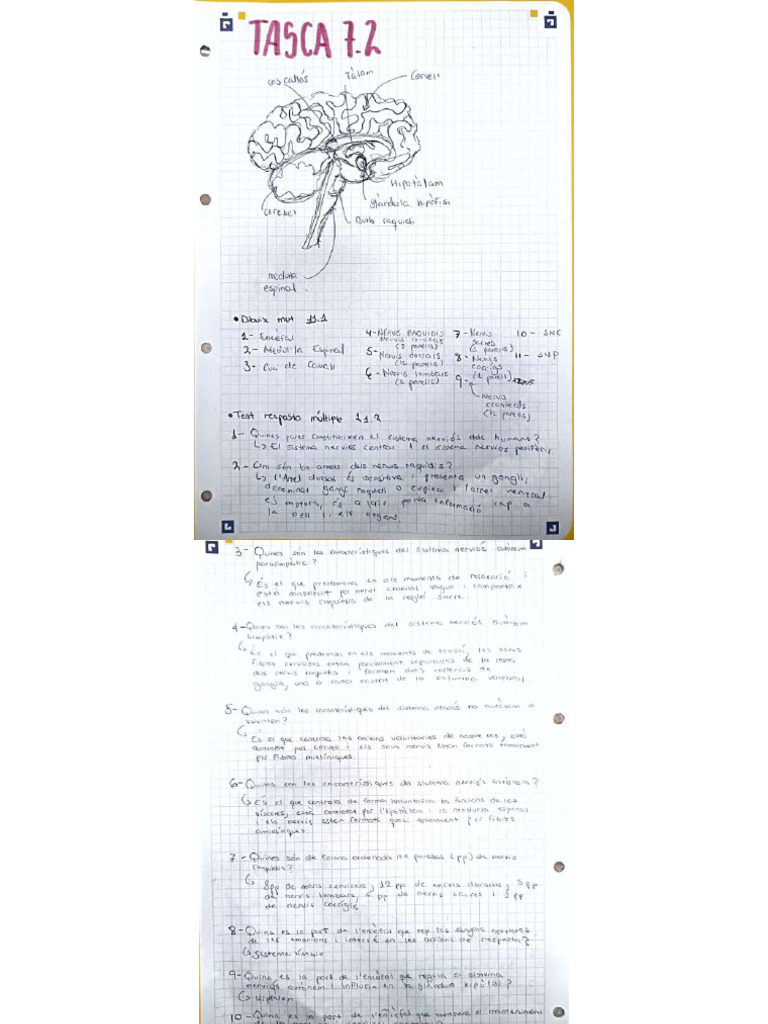 TASCA 7.2
cos callós
Tàlam
Cervell
Hipotàlam
glàndula hipòfisi
Bulb raquidi
cerebel
medul·la
espinal.
• Dibuix mut 11.1
1- Encèfal
2- Medul·la Espinal
3- Cua de Cavall
4- NERVIS RAQUIDIS
Nervis cervicals
(8 parells)
5- Nervis dorsals
(12 parells)
6- Nervis lumbars
(5 parells)
7- Nervis
sacres
(5 parells)
8- Nervis
coccigis
9-
Nervis
cranials
(12 parells)
10- SNC
11- SNP
• Test resposta múltiple 11.2
1- Quines parts constitueixen el sistema nerviós dels humans?
↳ El sistema nerviós central i el sistema nerviós perifèric.
2- Com són les arrels dels nervis raquidis?
↳ l'Arrel dorsal és sensitiva i presenta un gangli,
denominat gangli raquidi o espinal i l'arrel ventral
és motora, és a dir, porta informació cap a
la pell i els òrgans.
3- Quines són les característiques del sistema nerviós autònom
parasimpàtic?
↳ És el que predomina en els moments de relaxació i
està constituït pel nervi cranial vague i
els nervis raquidis de la regió sacre.
4- Quines són les característiques del sistema nerviós autònom
simpàtic?
↳ És el que predomina en els moments de tensió, les seves
fibres nervioses estan parcialment separades de la resta
dels nervis raquidis i formen dues cadenes de
ganglis, una a cada costat de la columna vertebral.
5- Quines són les característiques del sistema nerviós no autònom o
voluntari?
↳ És el que controla les accions voluntàries de nostre cos, està
controlat per cervell i els seus nervis estan formats totalment
per fibres mielíniques.
6- Quines són les característiques del sistema nerviós autònom?
↳ És el que controla de forma involuntària les funcions de les
vísceres, està controlat per l'hipotàlem i la medul·la espinal
i els nervis estan formats quasi totalment per fibres
amielíniques.
7- Quines són de forma ordenada les parelles (pp) de nervis
raquidis?
↳ 8pp de nervis cervicals, 12 pp de nervis dorsals, 5 pp
de nervis lumbars, 5 pp de nervis sacres i 1 pp
de nervis coccigis
8- Quina és la part de l'encèfal que rep les senyals nervioses
de les emocions i intervé en les accions de resposta?
↳ Sistema límbic
9- Quina és la part de l'encèfal que regula el sistema
nerviós autònom i influeix en la glàndula hipòfisi?
↳ Hipotàlem
10- Quina és la part de l'encèfal que el manteniment